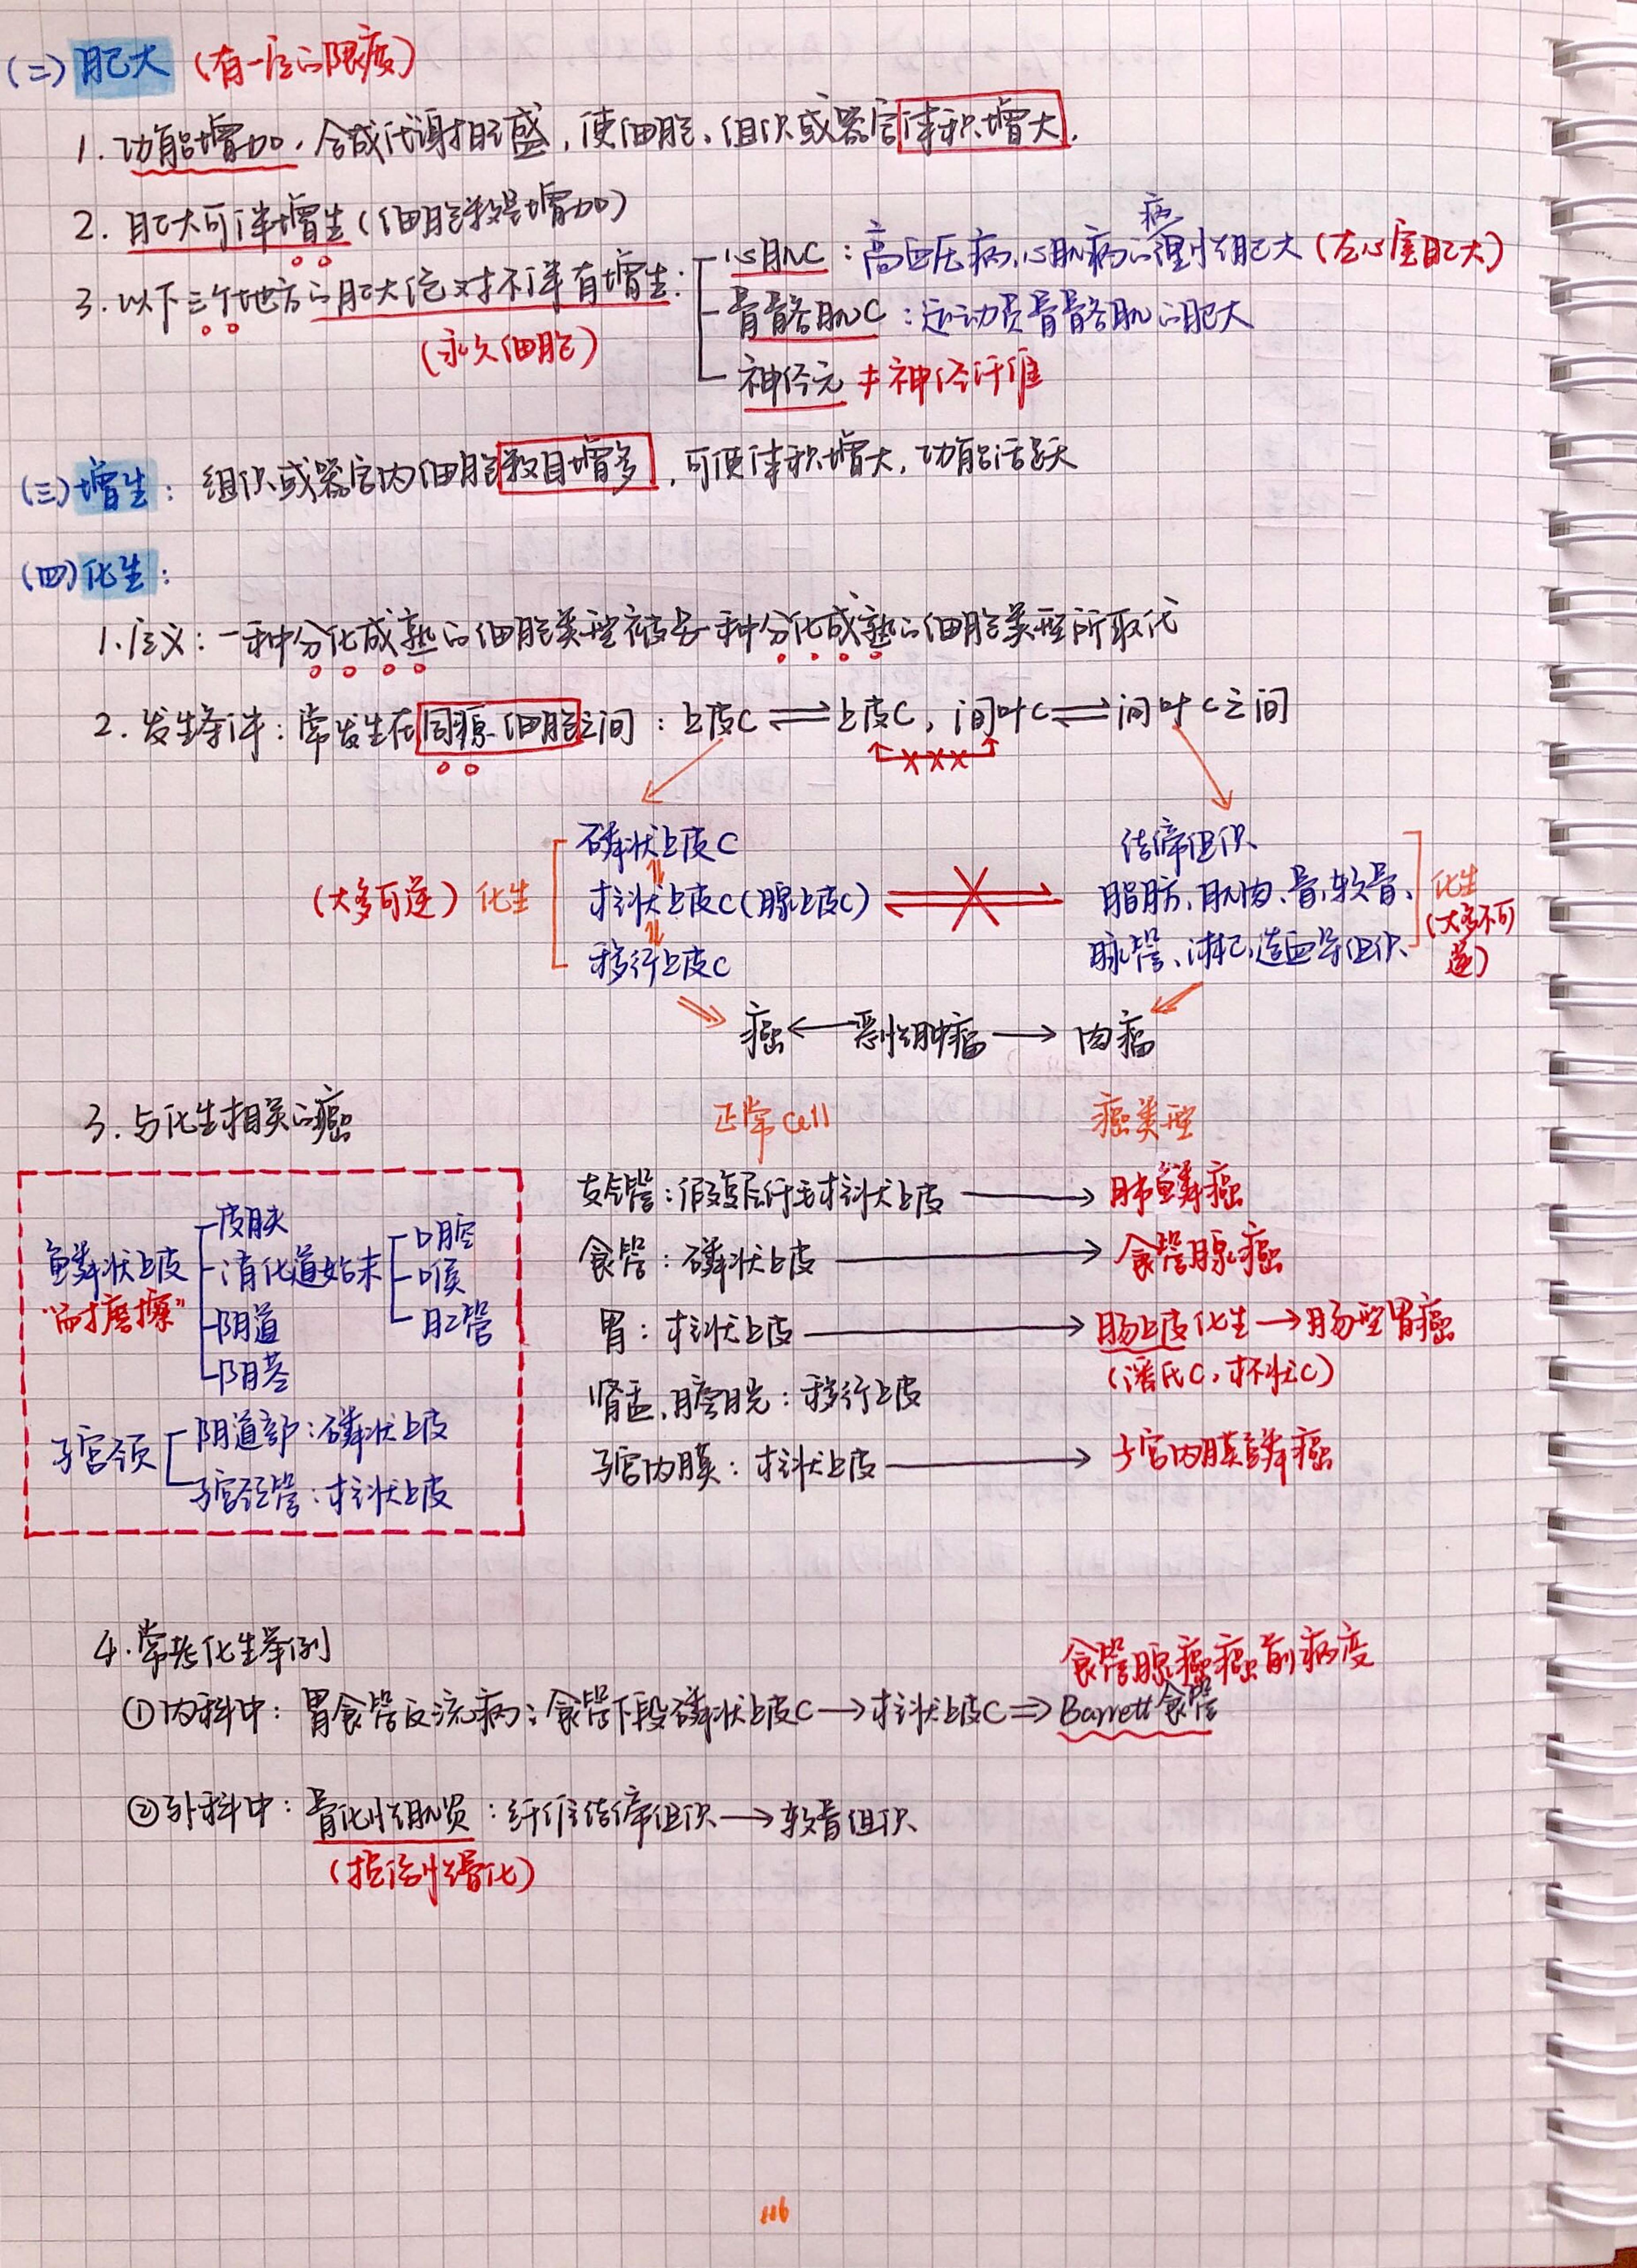 (二) 肥大 (有一定的限度)
1. 功能增加, 合成代谢旺盛, 使细胞、组织或器官体积增大.
2. 肥大可伴增生 (细胞数量增加)
3. 以下三个地方的肥大绝对不伴有增生:
(永久细胞)
心肌C : 高血压病、心肌病的病理性肥大 (左心室肥大)
骨骼肌C : 运动员骨骼肌的肥大
神经元 ≠ 神经纤维
(三) 增生 : 组织或器官内细胞数目增多, 可使体积增大, 功能活跃
(四) 化生 :
1. 定义 : 一种分化成熟的细胞类型被另一种分化成熟的细胞类型所取代
2. 发生条件 : 常发生在同源细胞之间 : 上皮C ⇌ 上皮C, 间叶C ⇌ 间叶C之间
× × ×
(大多可逆) 化生
磷状上皮C
柱状上皮C (腺上皮C)
移行上皮C
结缔组织、
脂肪、肌肉、骨、软骨、
脉管、淋巴、造血等组织、
化生
(大多不可逆)
癌 ← 恶性肿瘤 → 肉瘤
3. 与化生相关的癌
鳞状上皮
"耐磨擦"
皮肤
消化道始末
口腔
喉
肛管
阴道
阴茎
子宫颈
阴道部 : 磷状上皮
子宫颈管 : 柱状上皮
正常cell 癌类型
支气管 : 假复层纤毛柱状上皮 → 肺鳞癌
食管 : 磷状上皮 → 食管腺癌
胃 : 柱状上皮 → 肠上皮化生 → 肠型胃癌
(潘氏C, 杯状C)
肾盂、膀胱 : 移行上皮
子宫内膜 : 柱状上皮 → 子宫内膜鳞癌
4. 常考化生举例
食管腺癌癌前病变
① 内科中 : 胃食管反流病 : 食管下段磷状上皮C → 柱状上皮C ⇒ Barrett食管
② 外科中 : 骨化性肌炎 : 纤维结缔组织 → 软骨组织、
(损伤性骨化)
116